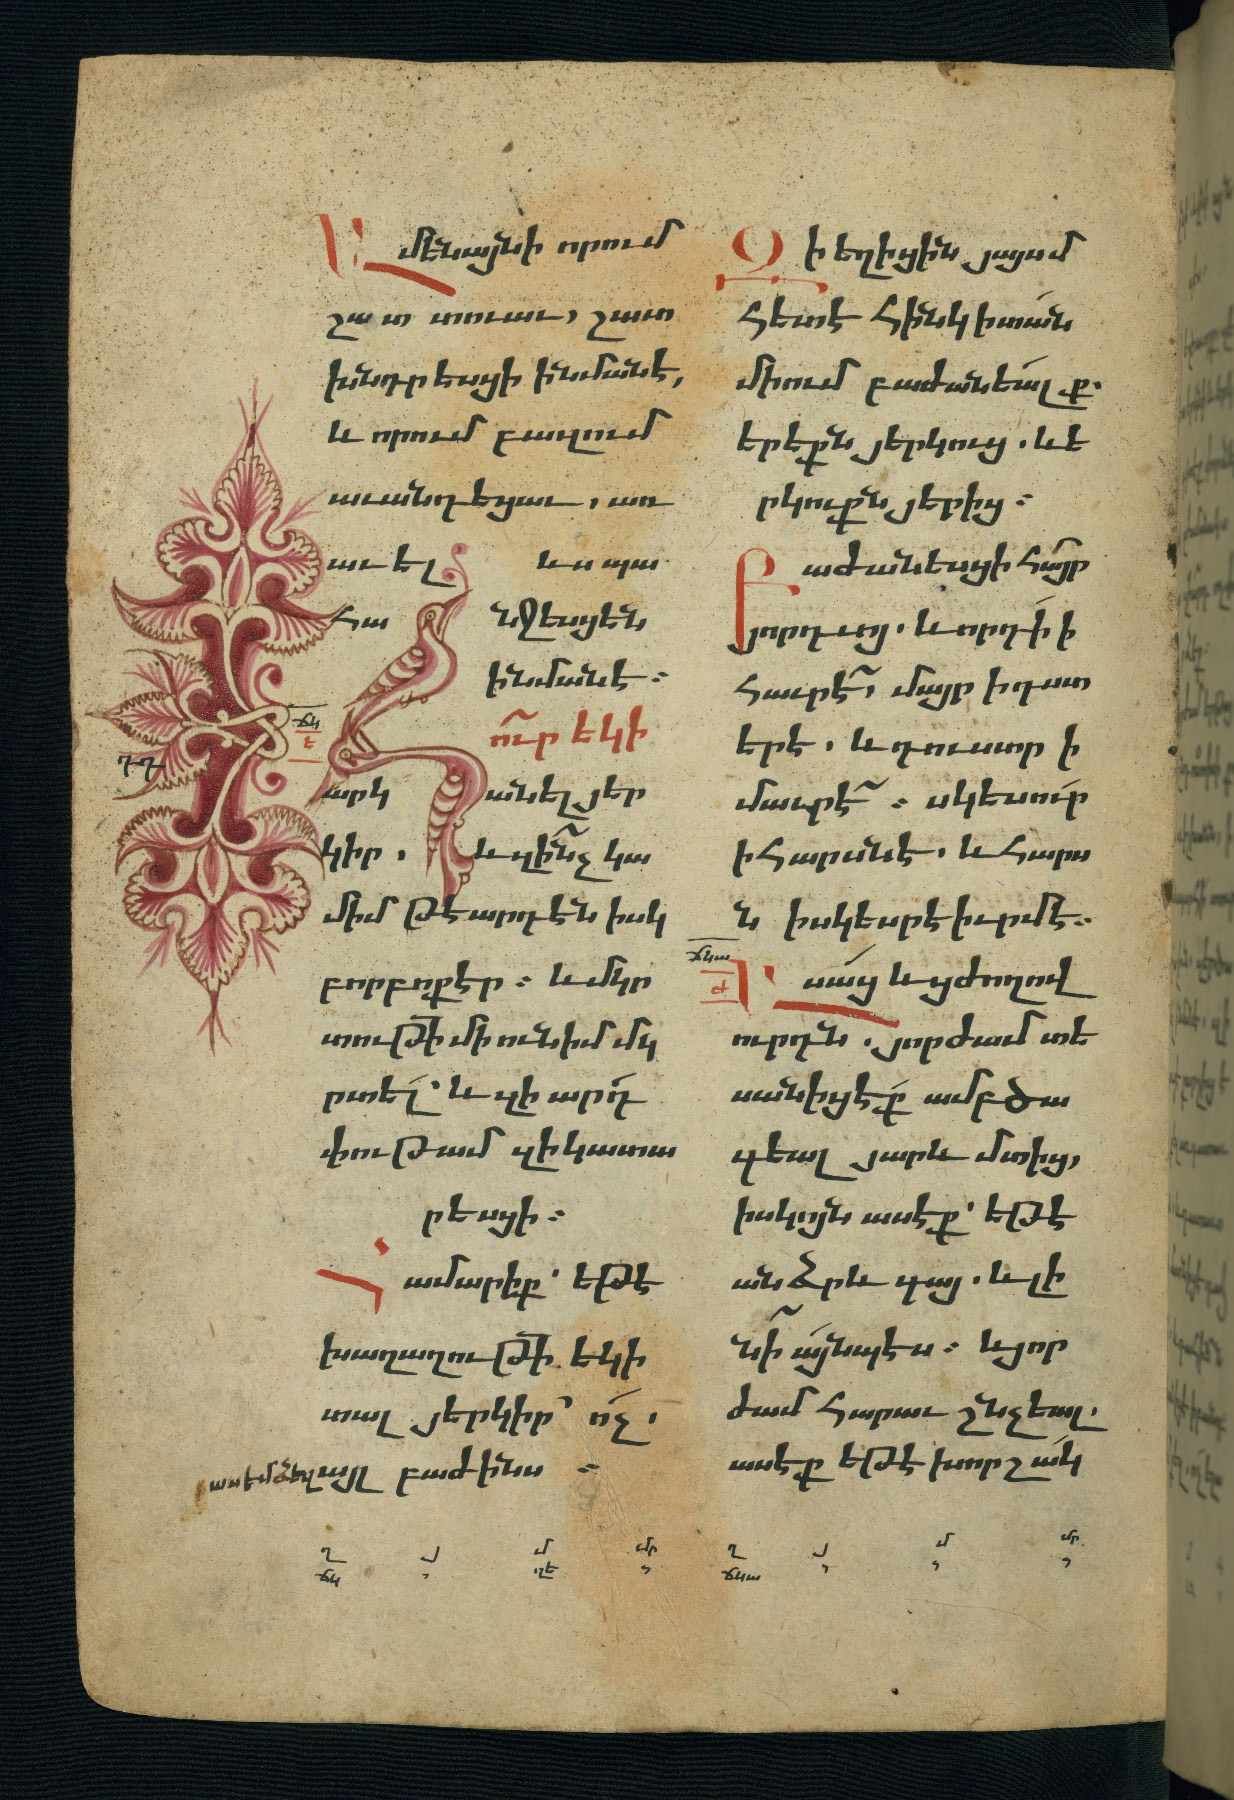 Ամենայնի որում
շատ տուաւ, շատ
խնդրեսցի ինմանէ,
և որում բազում
աւանդեցաւ, առ
աւել ևս պա
հա նջեսցեն
ինմանէ։
ՃԿ
Է
ՈՒր եկի
ԴԴ
արկ անել յեր
կիր, և զինչ կա
միմ թէ արդէն իսկ
բորբոքէր։ և մկր
տութի մի ունիմ մկ
րտել՝ և զի արդ
փութամ զի կատա
րեսցի։
Համարիք՝ եթէ
խաղաղութի եկի
տալ յերկիր՝ ոչ,
այլ բաժինս ։
ասեմ ձեզ
Զի եղիցին յայսմ
հետէ հինկ ի տան
միում բաժանեալք.
երեքն յերկուց. և ե
րկուքն յերից։
Բաժանեսցի հայր
յորդւոյ. և որդի ի
հաւրէ, մայր ի դստ
երէ, և դուստր ի
մաւրէ։ սկեսուր
ի հարսնէ, և հարս
ն ի սկեսրէ իւրմէ.
ՃԿԱ
Ժ
Ասաց և ցժողով
ուրդն. յորժամ տե
սանիցէք ամբ ծա
գեալ յարև մտից,
իսկոյն ասէք՝ եթէ
անձրև գայ. և լի
նի այնպէս։ և յոր
ժամ հարաւ շնչեալ.
ասէք եթէ խորշակ
Ղ Յ Մ ՄՐ Ղ Յ Մ ՄՐ
ՃԿ , ՂԵ , ՃԿԱ , , ,